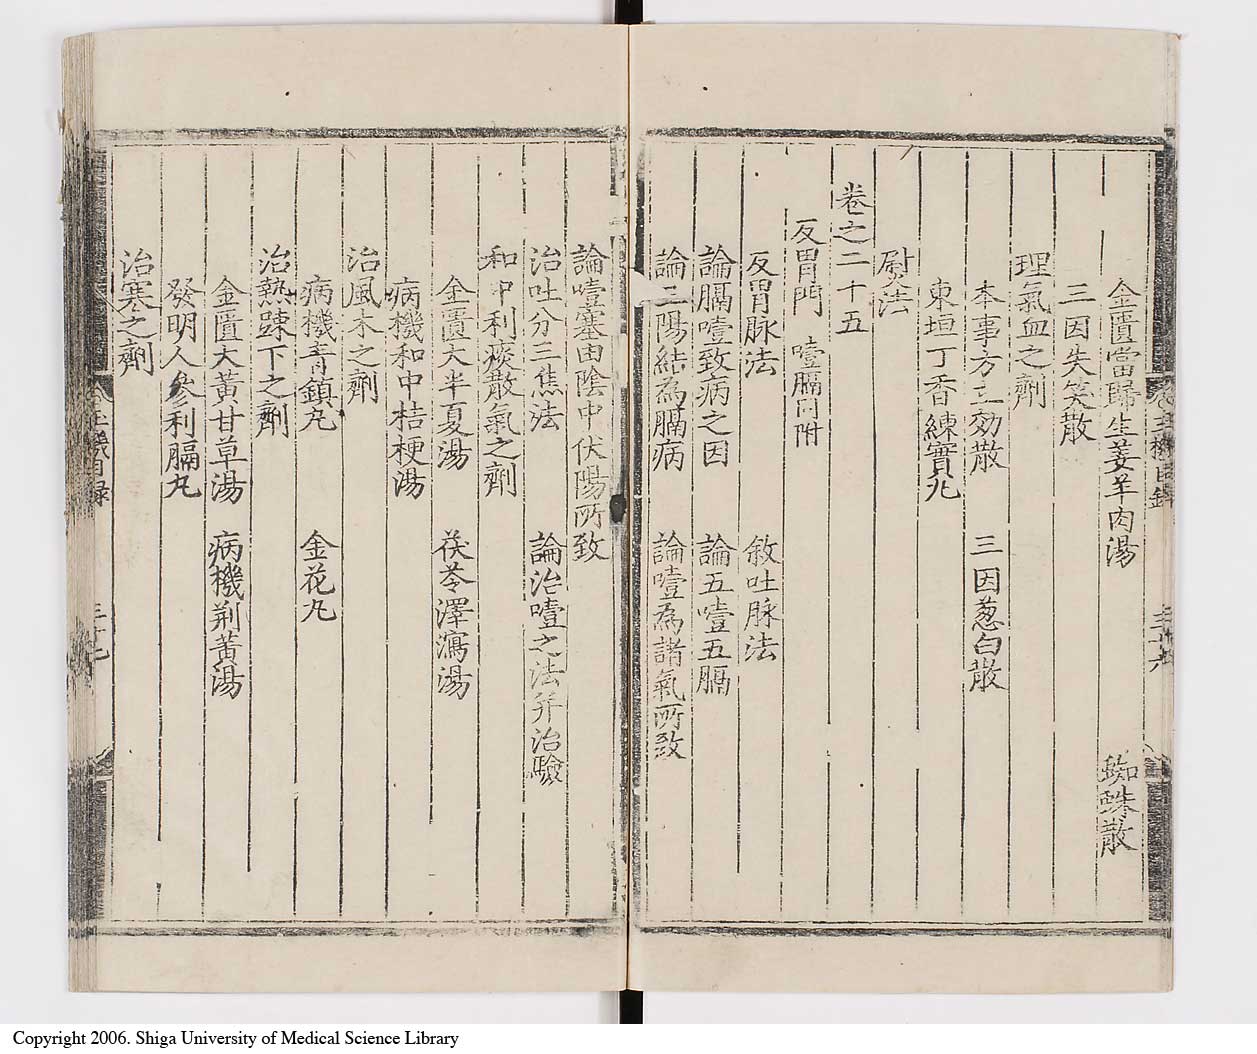 金匱當歸生姜羊肉湯　蜘蛛散
三因失笑散
理氣血之劑
本事方三効散　三因葱白散
東垣丁香練實丸
尉法
卷之二十五
反胃門　噎膈同附
反胃脉法　敘吐脉法
論膈噎致病之因　論五噎五膈
論三陽結為膈病　論噎為諸氣所致
論噎塞由陰中伏陽所致
治吐分三焦法　論治噎之法并治驗
和中利痰散氣之劑
金匱大半夏湯　茯苓澤瀉湯
病機和中桔梗湯
治風木之劑
病機青鎮丸　金花丸
治熱踈下之劑
金匱大黃甘草湯　病機荆黃湯
發明人參利膈丸
治寒之劑
玉機目録
三十七
Copyright 2006. Shiga University of Medical Science Library